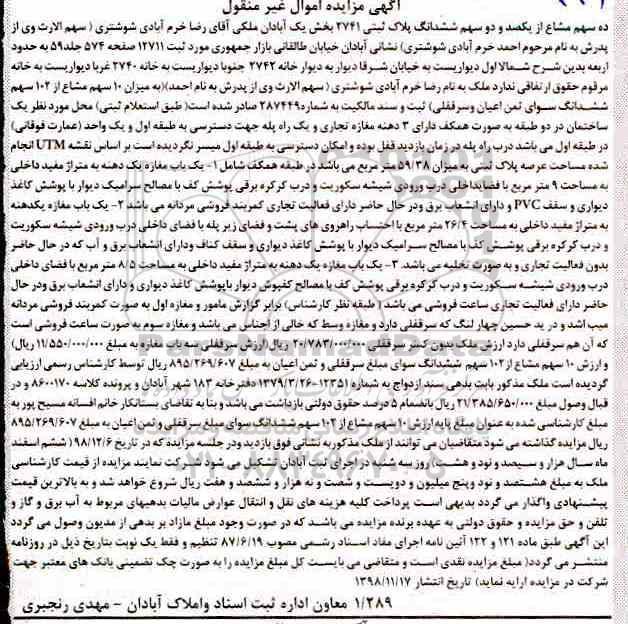 آگهی مزایده اموال غیر منقول
ده سهم مشاع از یکصد و دو سهم ششدانگ پلاک ثبتی ۲۷۴۱ بخش یک آبادان ملکی آقای رضا خرم آبادی شوشتری ( سهم الارث وی از
پدرش به نام مرحوم احمد خرم آبادی شوشتری) نشانی آبادان خیابان طالقانی بازار جمهوری مورد ثبت ۱۲۷۱۱ صفحه ۵۷۴ جلد۵۹ به حدود
اربعه بدین شرح شمالا اول دیواریست به خیابان شرقا دیوار به دیوار خانه ۲۷۴۲ جنوبا دیواریست به خانه ۲۷۴۰ غربا دیواریست به خانه
مرقوم حقوق ارتفاقی ندارد ملک به نام رضا خرم آبادی شوشتری ( سهم الارث وی از پدرش به نام احمد)(به میزان ۱۰ سهم مشاع از ۱۰۲ سهم
ششدانگ سوای ثمن اعیان وسرقفلی) ثبت و سند مالکیت به شماره۲۸۷۴۴۹ صادر شده است( طبق استعلام ثبتی) محل مورد نظر یک
ساختمان در دو طبقه به صورت همکف دارای ۳ دهنه مغازه تجاری و یک راه پله جهت دسترسی به طبقه اول و یک واحد (عمارت فوقانی)
در طبقه اول می باشد درب راه پله در زمان بازدید قفل بوده و امکان دسترسی به طبقه اول میسر نگردیده است بر اساس نقشه UTM انجام
شده مساحت عرصه پلاک ثبتی به میزان ۵۹/۳۸ متر مربع می باشد در طبقه همکف شامل ۱- یک باب مغازه یک دهنه به متراژ مفید داخلی
به مساحت ۹ متر مربع با فضایداخلی درب ورودی شیشه سکوریت و درب کرکره برقی پوشش کف با مصالح سرامیک دیوار با پوشش کاغذ
دیواری و سقف PVC و دارای انشعاب برق ودر حال حاضر دارای فعالیت تجاری کمربند فروشی مردانه می باشد ۲- یک باب مغازه یکدهنه
به متراژ مفید داخلی به مساحت ۲۶/۴ متر مربع با احتساب راهروی های پشت و فضای زیر پله با فضای داخلی درب ورودی شیشه سکوریت
و درب کرکره برقی پوشش کف با مصالح سرامیک دیوار با پوشش کاغذ دیواری و سقف کناف ودارای انشعاب برق و آب که در حال حاضر
بدون فعالیت تجاری و به صورت تخلیه می باشد. ۳- یک باب مغازه یک دهنه به متراژ مفید داخلی به مساحت ۸/۵ متر مربع با فضای داخلی
درب ورودی شیشه سکوریت و درب کرکره برقی پوشش کف با مصالح کفپوش دیوار باپوشش کاغذ دیواری و دارای انشعاب برق ودر حال
حاضر دارای فعالیت تجاری ساعت فروشی می باشد ( طبقه نظر کارشناس) برابر گزارش مامور و مغازه اول به صورت کمربند فروشی مردانه
میب اشد و در ید حسین چهار لنگ که سرقفلی دارد و مغازه وسط که خالی از اجناس می باشد و مغازه سوم به صورت ساعت فروشی است
که آن هم سرقفلی دارد ارزش ملک بدون کسر سرقفلی ۲۰/۷۸۳/۰۰۰/۰۰۰ ریال (ارزش سرقفلی سه باب مغازه به مبلغ ۱۱/۵۵۰/۰۰۰/۰۰۰ ریال)
و ارزش ۱۰ سهم مشاع از ۱۰۲ سهم ششدانگ سوای مبلغ سرقفلی و ثمن اعیان به مبلغ ۸۹۵/۲۶۹/۶۰۷ ریال توسط کارشناس رسمی ارزیابی
گردیده است ملک مذکور بابت بدهی سند ازدواج به شماره ۱۲۳۵۱-۱۳۷۹/۳/۲۶ دفترخانه ۱۸۳ شهر آبادان و پرونده کلاسه ۸۶۰۰۱۷۰ و در
قبال وصول مبلغ ۲۱/۳۸۵/۶۵۰/۰۰۰ ریال بانضمام ۵ درصد حقوق دولتی بازداشت می باشد و بنا به تقاضای بستانکار خانم افسانه مسیح پور به
مبلغ کارشناسی شده به عنوان مبلغ پایه ارزش ۱۰ سهم مشاع از ۱۰۲ سهم ششدانگ سوای مبلغ سرقفلی و ثمن اعیان به مبلغ ۸۹۵/۲۶۹/۶۰۷
ریال مزایده گذاشته می شود متقاضیان می توانند از ملک مذکور به نشانی فوق بازدید ودر جلسه مزایده که در تاریخ ۹۸/۱۲/۶ (ششم اسفند
ماه سال هزار و سیصد و نود و هشت) روز سه شنبه در اجرای ثبت آبادان تشکیل می شود شرکت نمایند مزایده از قیمت کارشناسی
ملک به مبلغ هشتصد و نود وپنج میلیون و دویست و شصت و نه هزار و ششصد و هفت ریال شروع خواهد شد و به بالاترین قیمت
پیشنهادی واگذار می گردد بدیهی است پرداخت کلیه هزینه های نقل و انتقال عوارض مالیات بدهیهای مربوط به آب برق و گاز و
تلفن و حق مزایده و حقوق دولتی به عهده برنده مزایده می باشد که در صورت وجود مبلغ مازاد بر بدهی از مدیون وصول می گردد
این آگهی طبق ماده ۱۲۱ و ۱۲۲ آئین نامه اجرای مفاد اسناد رسمی مصوب ۸۷/۶/۱۹ تنظیم و فقط یک نوبت بتاریخ ذیل در روزنامه
منتشر می گردد( مبلغ مزایده نقدی است و متقاضی می بایست کل مبلغ مزایده را به صورت چک تضمینی بانک های معتبر جهت
شرکت در مزایده ارایه نماید) تاریخ انتشار ۱۳۹۸/۱۱/۱۷
۱/۲۸۹ معاون اداره ثبت اسناد واملاک آبادان - مهدی رنجبری